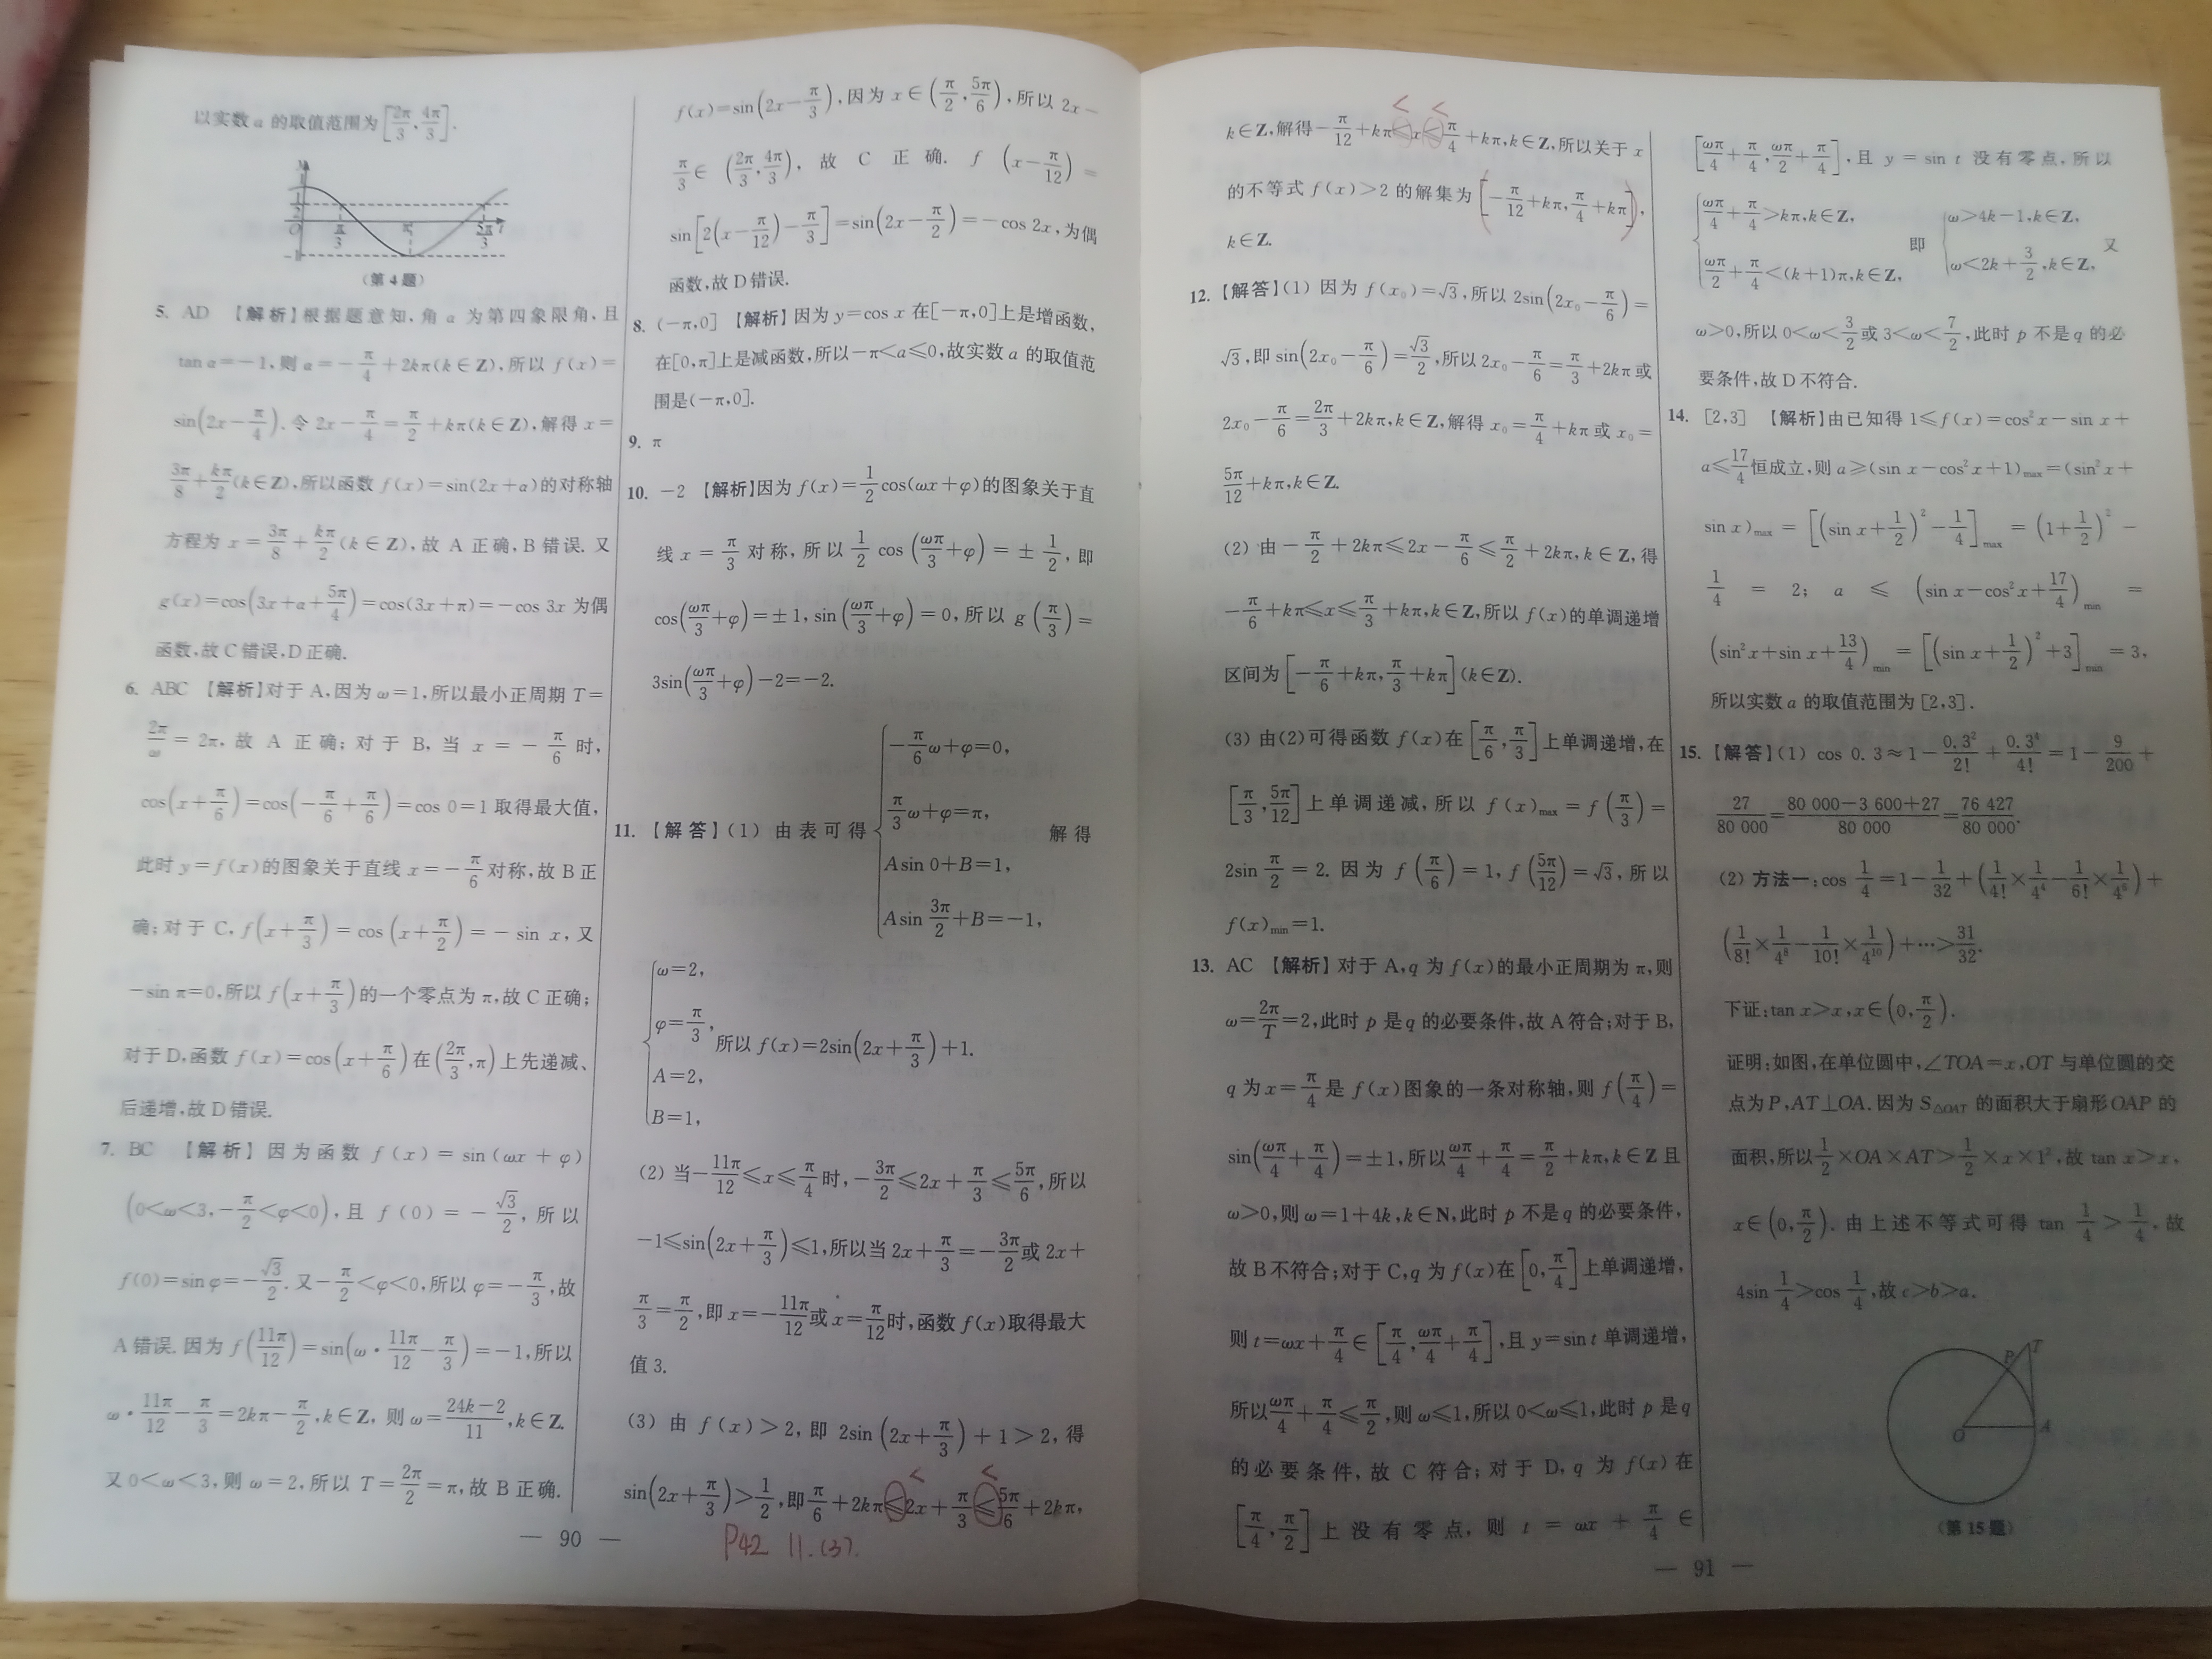 以实数 a 的取值范围为[2π/3, 4π/3].
y
1
1/2
O
π/3
π
5π/3
-1
(第4题)
5. AD 【解析】根据题意知,角 α 为第四象限角,且
tan α=-1,则 α=-π/4+2kπ(k∈Z),所以 f(x)=
sin(2x-π/4). 令 2x-π/4=π/2+kπ(k∈Z),解得 x=
3π/8+kπ/2(k∈Z),所以函数 f(x)=sin(2x+α)的对称轴
方程为 x=3π/8+kπ/2(k∈Z),故 A 正确,B 错误. 又
g(x)=cos(3x+α+5π/4)=cos(3x+π)=-cos 3x 为偶
函数,故 C 错误,D 正确.
6. ABC 【解析】对于 A,因为 ω=1,所以最小正周期 T=
2π/ω=2π,故 A 正确;对于 B,当 x=-π/6 时,
cos(x+π/6)=cos(-π/6+π/6)=cos 0=1 取得最大值,
此时 y=f(x)的图象关于直线 x=-π/6 对称,故 B 正
确;对于 C, f(x+π/3)=cos(x+π/2)=-sin x,又
-sin π=0,所以 f(x+π/3)的一个零点为 π,故 C 正确;
对于 D,函数 f(x)=cos(x+π/6)在(2π/3,π)上先递减、
后递增,故 D 错误.
7. BC 【解析】因为函数 f(x)=sin(ωx+φ)
(0<ω<3,-π/2<φ<0),且 f(0)=-√3/2,所以
f(0)=sin φ=-√3/2. 又-π/2<φ<0,所以 φ=-π/3,故
A 错误. 因为 f(11π/12)=sin(ω·11π/12-π/3)=-1,所以
ω·11π/12-π/3=2kπ-π/2,k∈Z, 则 ω=(24k-2)/11,k∈Z.
又 0<ω<3,则 ω=2,所以 T=2π/2=π,故 B 正确.
— 90 —
f(x)=sin(2x-π/3),因为 x∈(π/2,5π/6),所以 2x-
π/3∈(2π/3,4π/3),故 C 正确. f(x-π/12)=
sin[2(x-π/12)-π/3]=sin(2x-π/2)=-cos 2x,为偶
函数,故 D 错误.
8. (-π,0] 【解析】因为 y=cos x 在[-π,0]上是增函数,
在[0,π]上是减函数,所以-π<a≤0,故实数 a 的取值范
围是(-π,0].
9. π
10. -2 【解析】因为 f(x)=1/2cos(ωx+φ)的图象关于直
线 x=π/3 对称,所以 1/2 cos(ωπ/3+φ)=±1/2,即
cos(ωπ/3+φ)=±1,sin(ωπ/3+φ)=0,所以 g(π/3)=
3sin(ωπ/3+φ)-2=-2.
11. 【解答】(1) 由表可得 { -π/6ω+φ=0, π/3ω+φ=π, Asin 0+B=1, Asin 3π/2+B=-1, 解得
{ ω=2, φ=π/3, A=2, B=1, 所以 f(x)=2sin(2x+π/3)+1.
(2) 当-11π/12≤x≤π/4时,-3π/2≤2x+π/3≤5π/6,所以
-1≤sin(2x+π/3)≤1,所以当 2x+π/3=-3π/2或 2x+
π/3=π/2,即 x=-11π/12或 x=π/12时,函数 f(x)取得最大
值 3.
(3) 由 f(x)>2,即 2sin(2x+π/3)+1>2,得
< <
sin(2x+π/3)>1/2,即π/6+2kπ≤2x+π/3≤5π/6+2kπ,
P42 11.(3).
< <
k∈Z,解得-π/12+kπ≤x≤π/4+kπ,k∈Z,所以关于 x
的不等式 f(x)>2 的解集为[-π/12+kπ,π/4+kπ],
k∈Z.
12. 【解答】(1) 因为 f(x₀)=√3,所以 2sin(2x₀-π/6)=
√3,即 sin(2x₀-π/6)=√3/2,所以 2x₀-π/6=π/3+2kπ 或
2x₀-π/6=2π/3+2kπ,k∈Z,解得 x₀=π/4+kπ 或 x₀=
5π/12+kπ,k∈Z.
(2) 由-π/2+2kπ≤2x-π/6≤π/2+2kπ,k∈Z,得
-π/6+kπ≤x≤π/3+kπ,k∈Z,所以 f(x)的单调递增
区间为[-π/6+kπ,π/3+kπ](k∈Z).
(3) 由(2)可得函数 f(x)在[π/6,π/3]上单调递增,在
[π/3,5π/12]上单调递减,所以 f(x)max=f(π/3)=
2sin π/2=2. 因为 f(π/6)=1, f(5π/12)=√3,所以
f(x)min=1.
13. AC 【解析】对于 A,q 为 f(x)的最小正周期为 π,则
ω=2π/T=2,此时 p 是 q 的必要条件,故 A 符合;对于 B,
q 为 x=π/4 是 f(x)图象的一条对称轴,则 f(π/4)=
sin(ωπ/4+π/4)=±1,所以ωπ/4+π/4=π/2+kπ,k∈Z 且
ω>0,则 ω=1+4k,k∈N,此时 p 不是 q 的必要条件,
故 B 不符合;对于 C,q 为 f(x)在[0,π/4]上单调递增,
则 t=ωx+π/4∈[π/4,ωπ/4+π/4],且 y=sin t 单调递增,
所以ωπ/4+π/4≤π/2,则 ω≤1,所以 0<ω≤1,此时 p 是 q
的必要条件,故 C 符合;对于 D,q 为 f(x)在
[π/4,π/2]上没有零点,则 t=ωx+π/4∈
— 91 —
[ωπ/4+π/4,ωπ/2+π/4],且 y=sin t 没有零点,所以
{ ωπ/4+π/4>kπ,k∈Z, ωπ/2+π/4<(k+1)π,k∈Z, 即 { ω>4k-1,k∈Z, ω<2k+3/2,k∈Z, 又
ω>0,所以 0<ω<3/2或 3<ω<7/2,此时 p 不是 q 的必
要条件,故 D 不符合.
14. [2,3] 【解析】由已知得 1≤f(x)=cos²x-sin x+
a≤17/4恒成立,则 a≥(sin x-cos²x+1)max=(sin²x+
sin x)max=[(sin x+1/2)²-1/4]max=(1+1/2)²-
1/4=2; a≤(sin x-cos²x+17/4)min=
(sin²x+sin x+13/4)min=[(sin x+1/2)²+3]min=3,
所以实数 a 的取值范围为[2,3].
15. 【解答】(1) cos 0.3≈1-0.3²/2!+0.3⁴/4!=1-9/200+
27/80 000=(80 000-3 600+27)/80 000=76 427/80 000.
(2) 方法一:cos 1/4=1-1/32+(1/4!×1/4⁴-1/6!×1/4⁶)+
(1/8!×1/4⁸-1/10!×1/4¹⁰)+…>31/32.
下证:tan x>x,x∈(0,π/2).
证明:如图,在单位圆中,∠TOA=x,OT 与单位圆的交
点为 P,AT⊥OA. 因为 S△OAT 的面积大于扇形 OAP 的
面积,所以1/2×OA×AT>1/2×x×1²,故 tan x>x,
x∈(0,π/2). 由上述不等式可得 tan 1/4>1/4,故
4sin 1/4>cos 1/4,故 c>b>a.
P
T
O
A
(第15题)